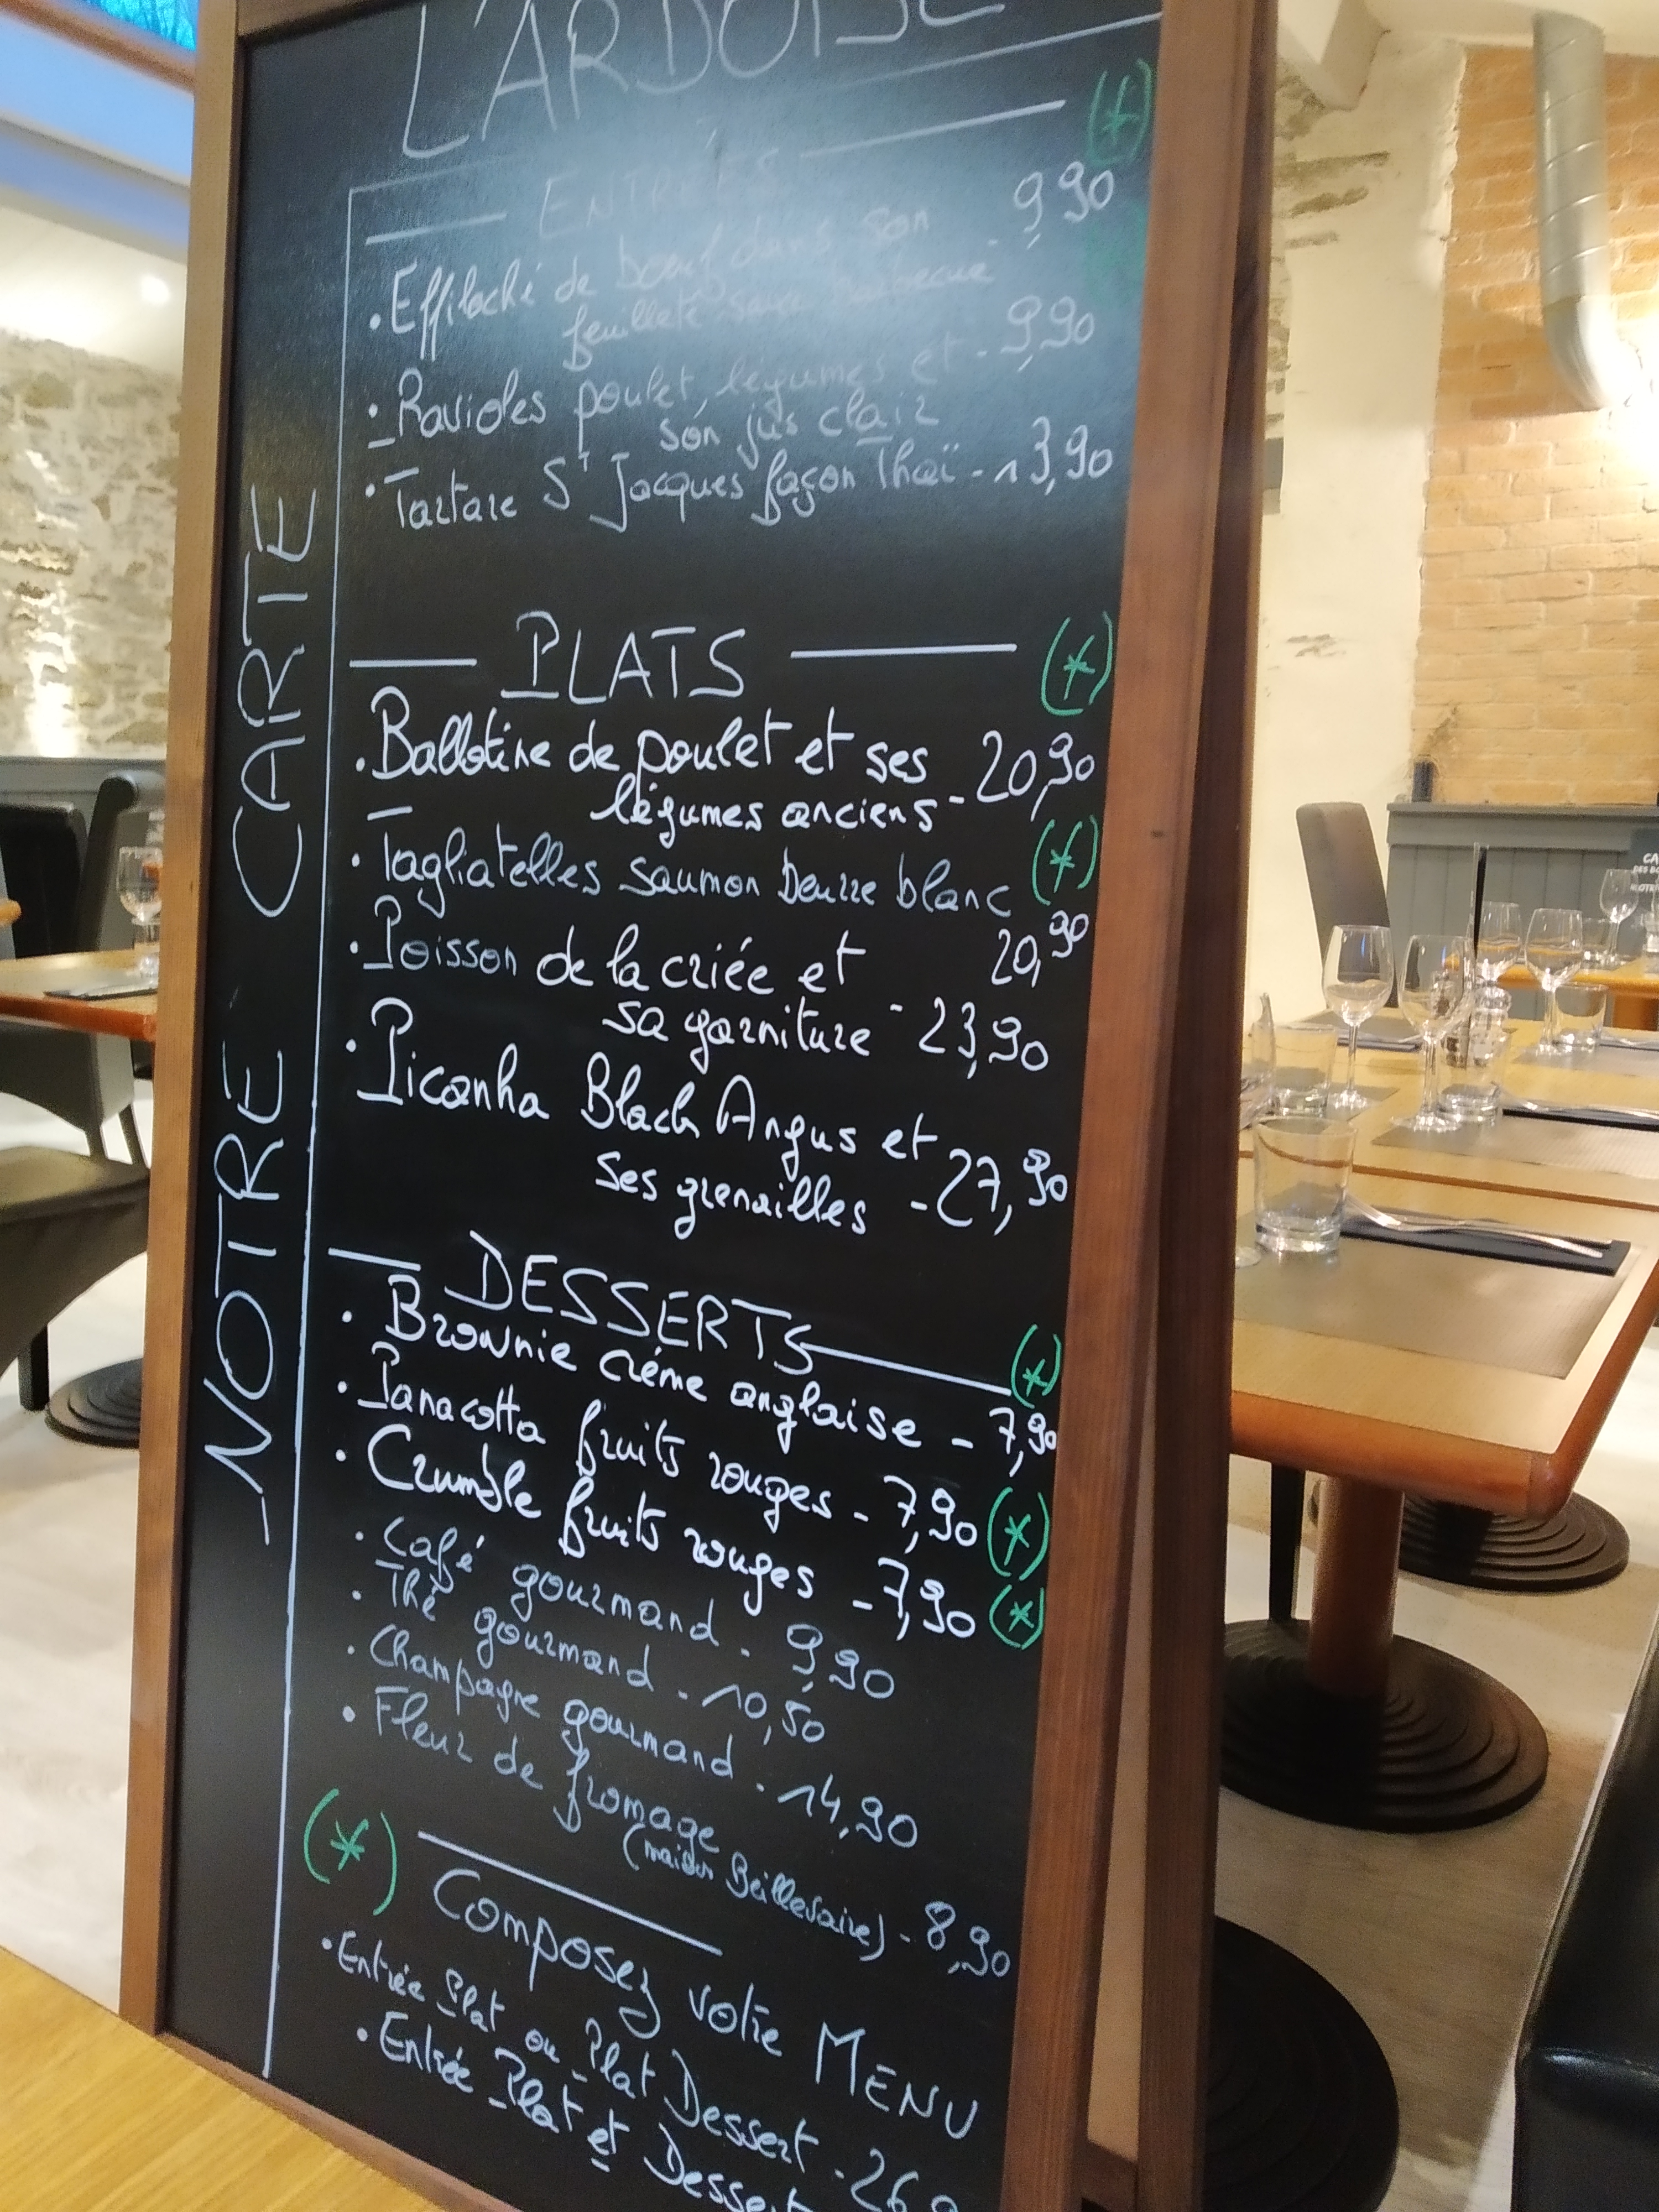 L'ARDOISE
ENTRÉES (*)
• Effiloché de boeuf dans son - 9,90
feuilleté sauce barbecue
• Ravioles poulet, légumes et - 9,90
son jus clair
• Tartare St Jacques façon Thaï - 13,90
PLATS (*)
• Ballotine de poulet et ses
légumes anciens - 20,90
• Tagliatelles saumon beurre blanc (*)
20,90
• Poisson de la criée et
sa garniture - 23,90
• Picanha Black Angus et
ses grenailles - 27,90
DESSERTS (*)
• Brownie crème anglaise - 7,90
• Panacotta fruits rouges - 7,90 (*)
• Crumble fruits rouges - 7,90 (*)
• Café gourmand - 9,90
• Thé gourmand - 10,50
• Champagne gourmand - 14,90
• Fleur de fromage
(maison Beillevaire) - 8,90
(*) Composez votre MENU
• Entrée Plat ou Plat Dessert - 26
• Entrée Plat et Dessert
NOTRE CARTE